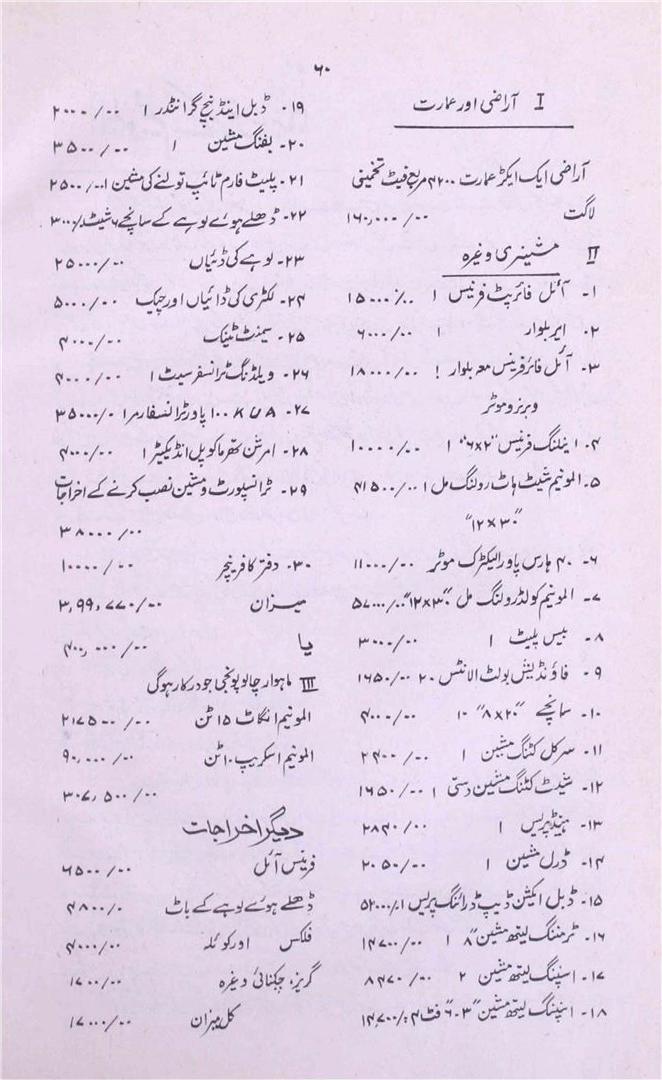 ۶۰
I آراضی اور عمارت
آراضی ایک ایکڑ عمارت ۴۲۰۰ مربع فیٹ تخمینی
لاگت ۱۶۰,۰۰۰/۰۰
II مشینری وغیرہ
۱- آئل فائرپٹ فرنیس ۱ ۱۵۰۰۰/۰۰
۲- ایربلوار ۱ ۶۰۰۰/۰۰
۳- آئل فائر فرنیس معہ بلوار ! ۱۸۰۰۰/۰۰
و برنر و موٹر
۴- اینلنگ فرنیس "۲×۶" ۱ ۱۰۰۰۰/۰۰
۵- المونیم شیٹ ہاٹ رولنگ مل ۱ ۴۱۵۰۰/۰۰
"۳۰×۱۲"
۶- ۴۰ ہارس پاور الیکٹرک موٹر ۱۱۰۰۰/۰۰
۷- المونیم کولڈ رولنگ مل "۳۰×۱۲" ۵۷۰۰۰/۰۰
۸- بیس پلیٹ ۱ ۳۰۰۰/۰۰
۹- فاؤنڈیشن بولٹ الانٹس ۲۰ ۱۶۵۰/۰۰
۱۰- سانچے "۲۰×۸" ۱۰ ۴۰۰۰/۰۰
۱۱- سرکل کٹنگ مشین ۱ ۲۴۰۰/۰۰
۱۲- شیٹ کٹنگ مشین دستی ۱ ۱۶۵۰/۰۰
۱۳- ہینڈ پریس ۱ ۲۸۴۰/۰۰
۱۴- ڈرل مشین ۱ ۲۰۵۰/۰۰
۱۵- ڈبل ایکشن ڈیپ ڈرائنگ پریس ۱ ۵۲۰۰۰/۰
۱۶- ٹرمننگ لیتھ مشین "۸ ۱ ۱۴۷۰۰/۰۰
۱۷- اسپنگ لیتھ مشین ۲ ۸۴۷۰/۰۰
۱۸- اسپننگ لیتھ مشین "۳-۶" فٹ ۴ ۱۴,۷۰۰/۰
۱۹- ڈبل اینڈ بنچ گرائنڈر ۱ ۲۰۰۰/۰۰
۲۰- بفنگ مشین ۱ ۳۵۰۰/۰۰
۲۱- پلیٹ فارم ٹائپ تولنے کی مشین ۱ ۲۵۰۰/۰۰
۲۲- ڈھلے ہوئے لوہے کے سانچے ۶ شیٹ ۳۰۰۰/۰
۲۳- لوہے کی ڈئیاں ۲۵۰۰۰/۰۰
۲۴- لکڑی کی ڈائیاں اور چیک ۵۰۰۰/۰۰
۲۵- سیمنٹ ٹینک ۴۰۰۰/۰۰
۲۶- ویلڈنگ ٹرانسفر سیٹ ۱ ۴۰۰۰/۰۰
۲۷- ۱۰۰ KUA پاور ٹرانسفارمر ۱ ۳۵۰۰۰/۰
۲۸- امرشن تھرماکوپل انڈیکیٹر ۱ ۴۰۰۰/۰۰
۲۹- ٹرانسپورٹ و مشین نصب کرنے کے اخراجات
۳۸۰۰۰/۰۰
۳۰- دفتر کا فرنیچر ۱۰۰۰۰/۰۰
میزان ۳,۹۹,۷۷۰/۰۰
یا ۴۰۰,۰۰۰/۰۰
III ماہوار چالو پونجی جو درکار ہوگی
المونیم انگاٹ ۱۵ ٹن ۲۱۷۵۰۰/۰۰
المونیم اسکریپ ۱۰ ٹن ۹۰,۰۰۰/۰۰
۳۰۷,۵۰۰/۰۰
دیگر اخراجات
فرنیس آئل ۶۵۰۰/۰۰
ڈھلے ہوئے لوہے کے باٹ ۴۸۰۰/۰
فلکس اور کوئلہ ۴۰۰۰/۰۰
گریز، چکنائی وغیرہ ۱۷۰۰/۰۰
کل میزان ۱۷۰۰۰/۰۰